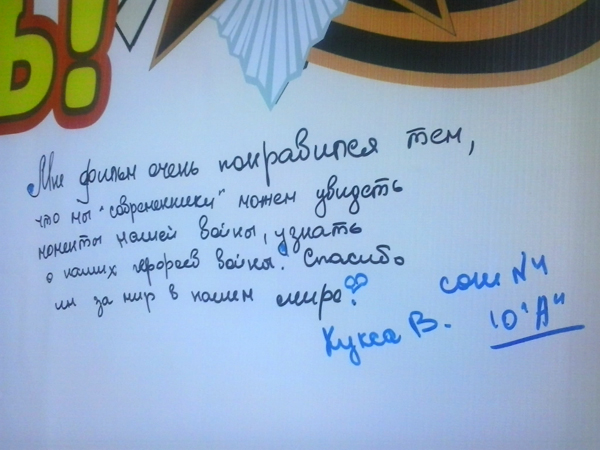 Ь!
Мне фильм очень понравился тем,
что мы "современники" можем увидеть
моменты нашей войны, узнать
о наших героев войны. Спасибо
им за мир в нашем мире!
сош №4
Кукса В. 10 "А"